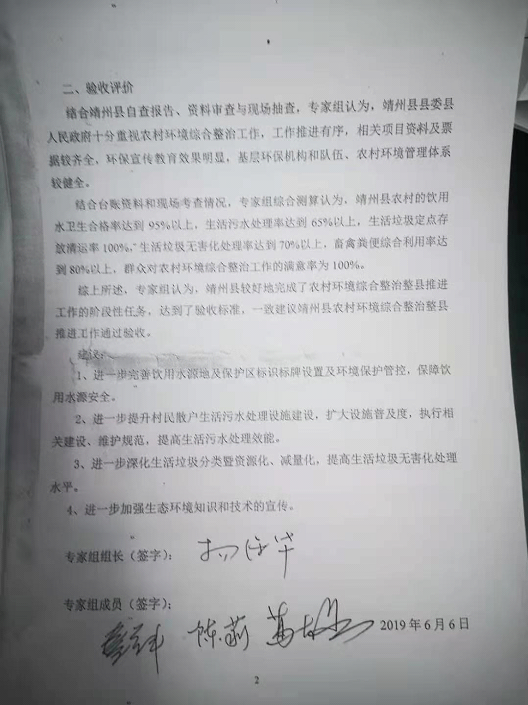 二、验收评价
结合靖州县自查报告、资料审查与现场抽查，专家组认为，靖州县县委县
人民政府十分重视农村环境综合整治工作，工作推进有序，相关项目资料及票
据较齐全、环保宣传教育效果明显，基层环保机构和队伍、农村环境管理体系
较健全。
结合台账资料和现场考查情况，专家组综合测算认为，靖州县农村的饮用
水卫生合格率达到 95%以上，生活污水处理率达到 65%以上，生活垃圾定点存
放清运率 100%，生活垃圾无害化处理率达到 70%以上，畜禽粪便综合利用率达
到 80%以上，群众对农村环境综合整治工作的满意率为 100%。
综上所述、专家组认为，靖州县较好地完成了农村环境综合整治整县推进
工作的阶段性任务，达到了验收标准，一致建议靖州县农村环境综合整治整县
推进工作通过验收。
建议：
1、进一步完善饮用水源地及保护区标识标牌设置及环境保护管控，保障饮
用水源安全。
2、进一步提升村民散户生活污水处理设施建设，扩大设施普及度，执行相
关建设、维护规范，提高生活污水处理效能。
3、进一步深化生活垃圾分类暨资源化、减量化，提高生活垃圾无害化处理
水平。
4、进一步加强生态环境知识和技术的宣传。
专家组组长（签字）：
专家组成员（签字）：
陈莉
2019 年 6 月 6 日
2